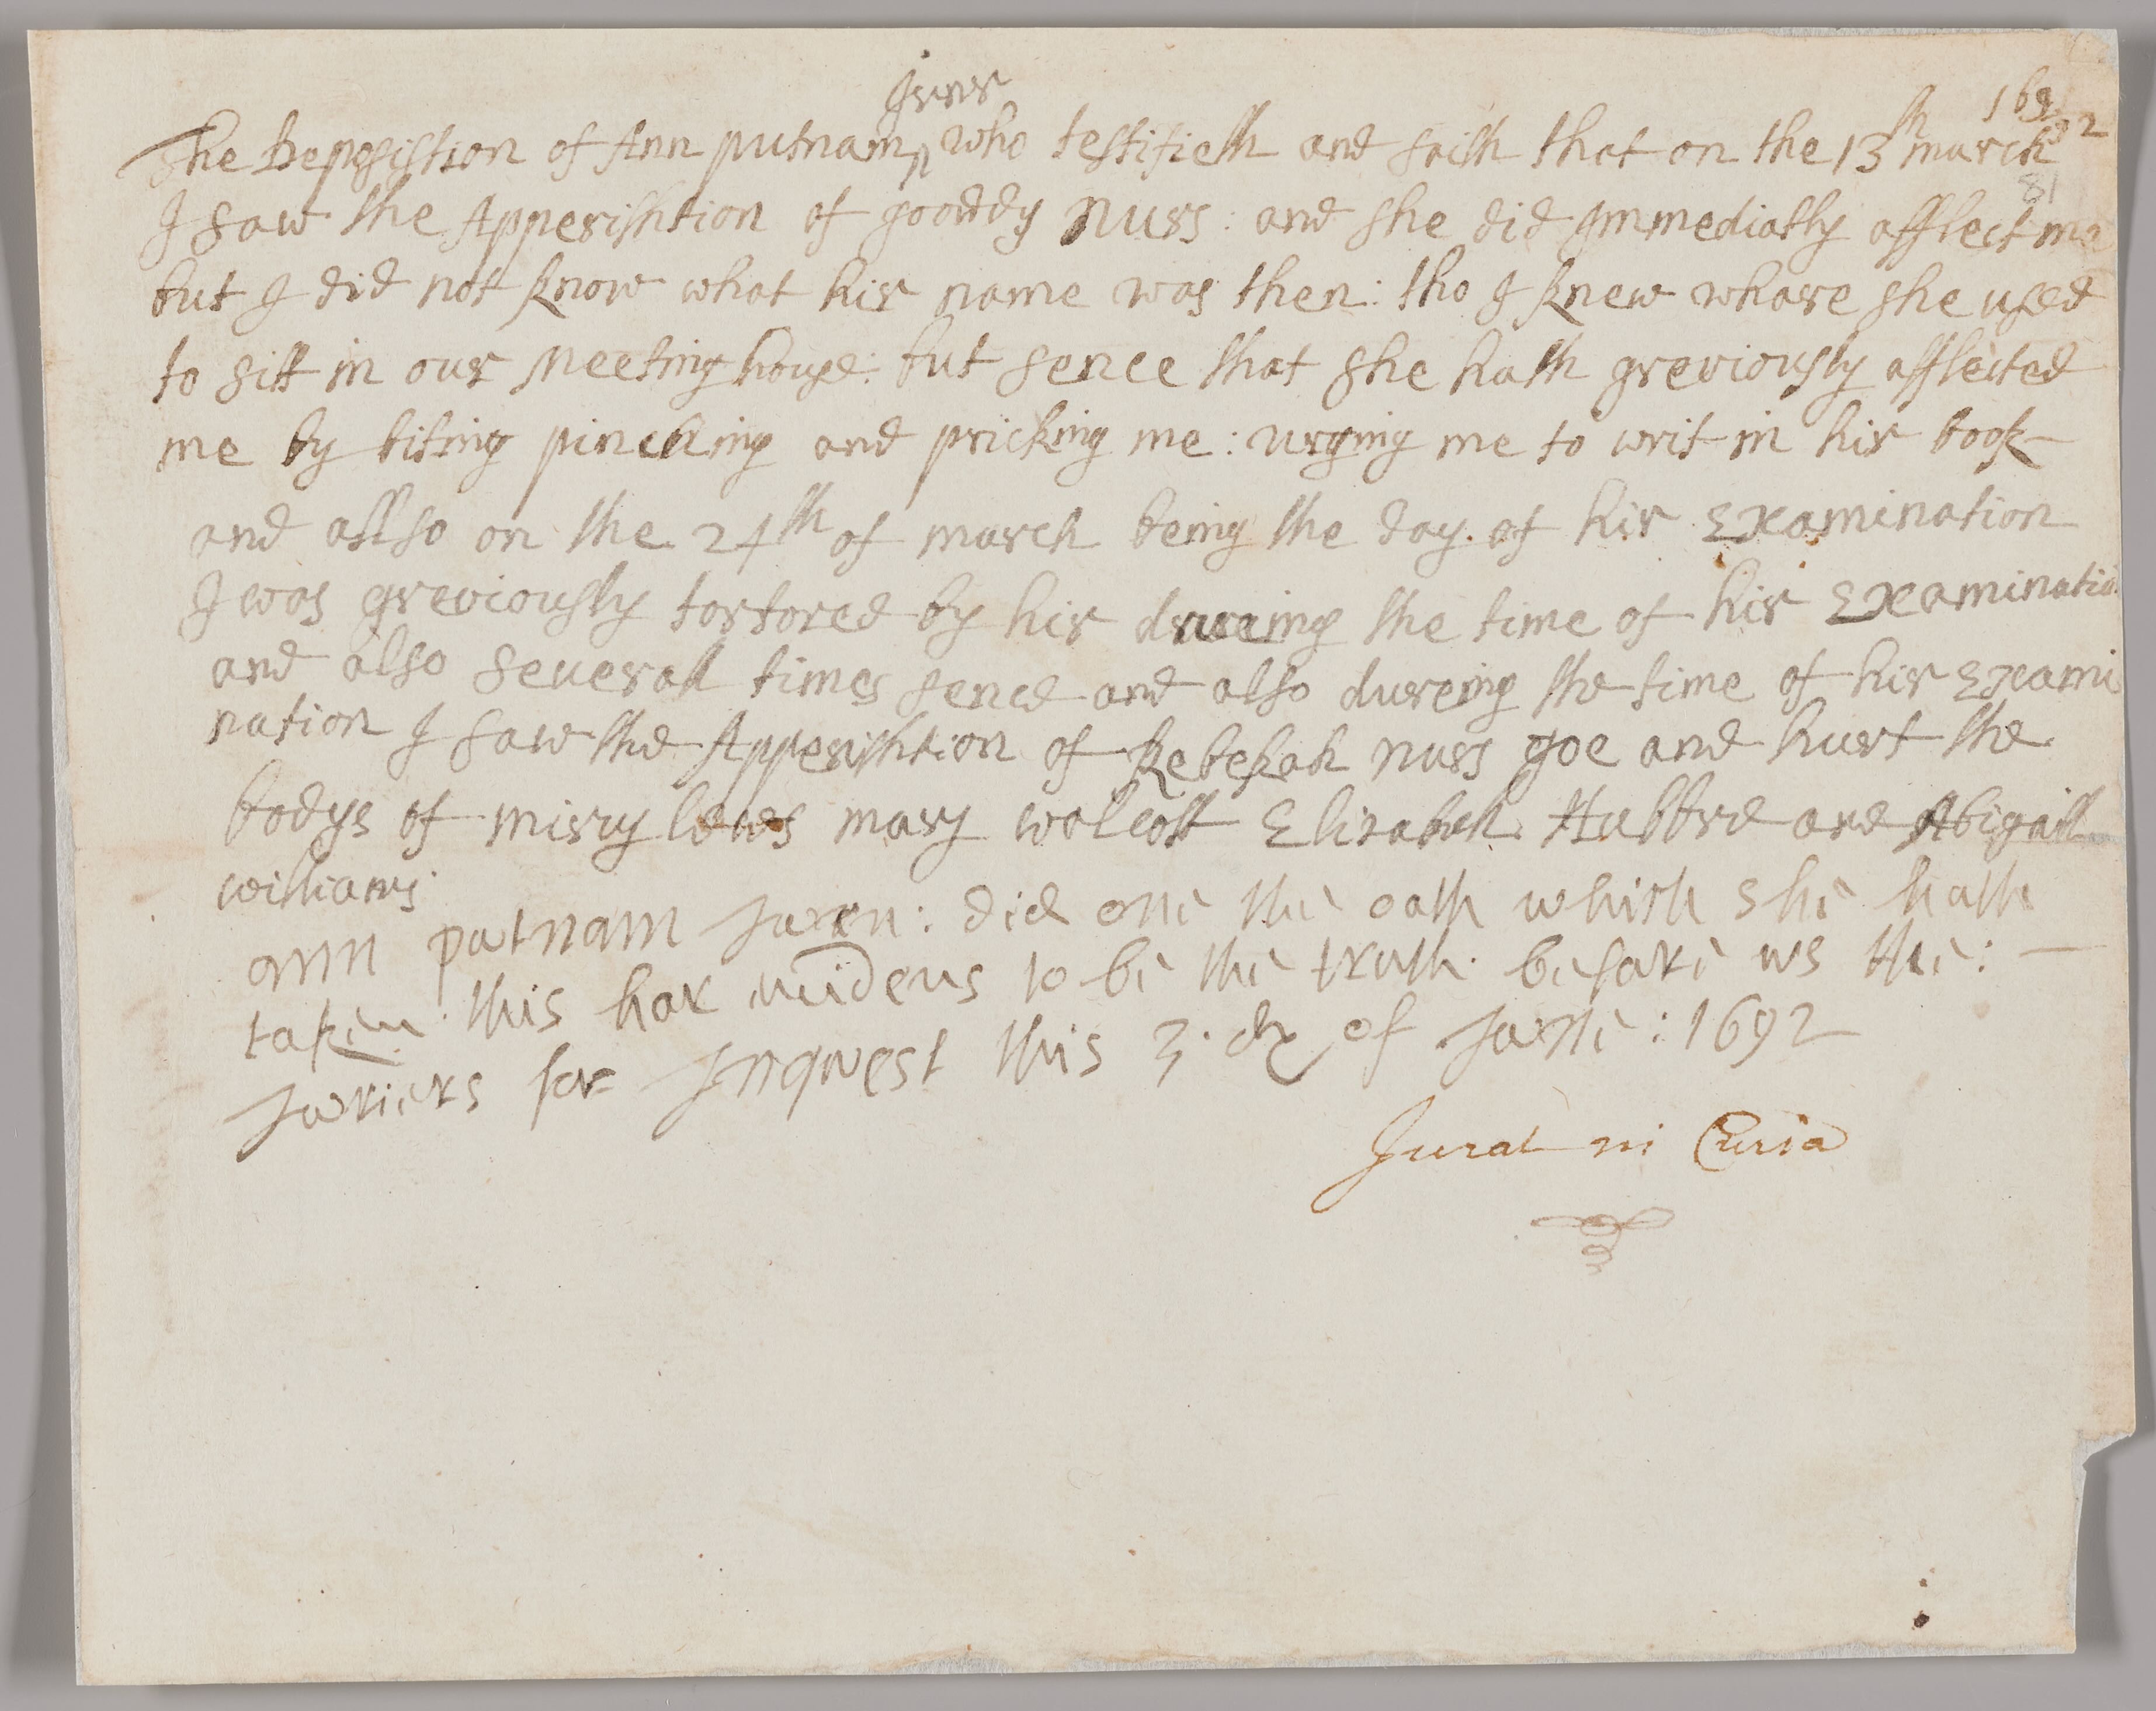 Junr
1691/2
The Deposistion of Ann putnam who testifieth and saith that on the 13th march
81
I saw the Apperishtion of gooddy Nurs: and she did Immediatly afflect me
but I did not know what hir name was then: tho I knew whare she used
to sitt in our Meetinghouse: but sence that she hath greviously afflected
me by biting pinching and pricking me: urging me to writ in hir book
and allso on the 24th of march being the day of hir Examination
I was greviously tortored by hir dureing the time of hir Examinatio
and also severall times sence and also dureing the time of hir Exami
nation I saw the Apperishtion of Rebekah nurs goe and hurt the
bodys of misry lewes mary wolcott Elizabeth Hubbrd and Abigaill
williams.
ann putnam Juren: did one the oath which she hath
taken: this har evidens to be the truth. before us the:
Juriers for Inquest this 3. dy of June: 1692
Jurat in Curia